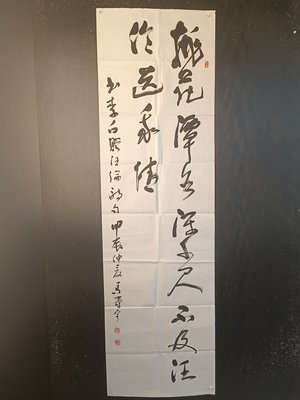 桃花潭水深千尺不及汪
伦送我情
书李白赠汪伦诗句甲辰仲夏